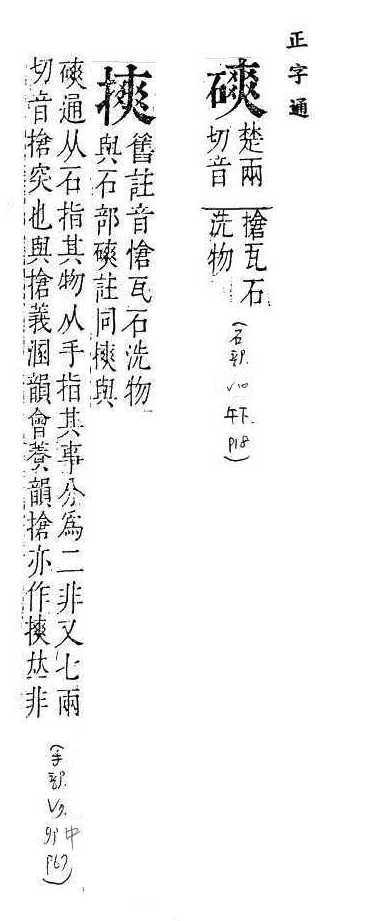 正字通
磢
楚兩
切音
搶瓦石
洗物
(石部.
V10
午下.
P18)
摤
舊註音愴瓦石洗物
與石部磢註同摤與
磢通从石指其物从手指其事分爲二非又七兩
切音搶突也與搶義溷韻會養韻搶亦作摤𠀤非
(手部.
中
P67)